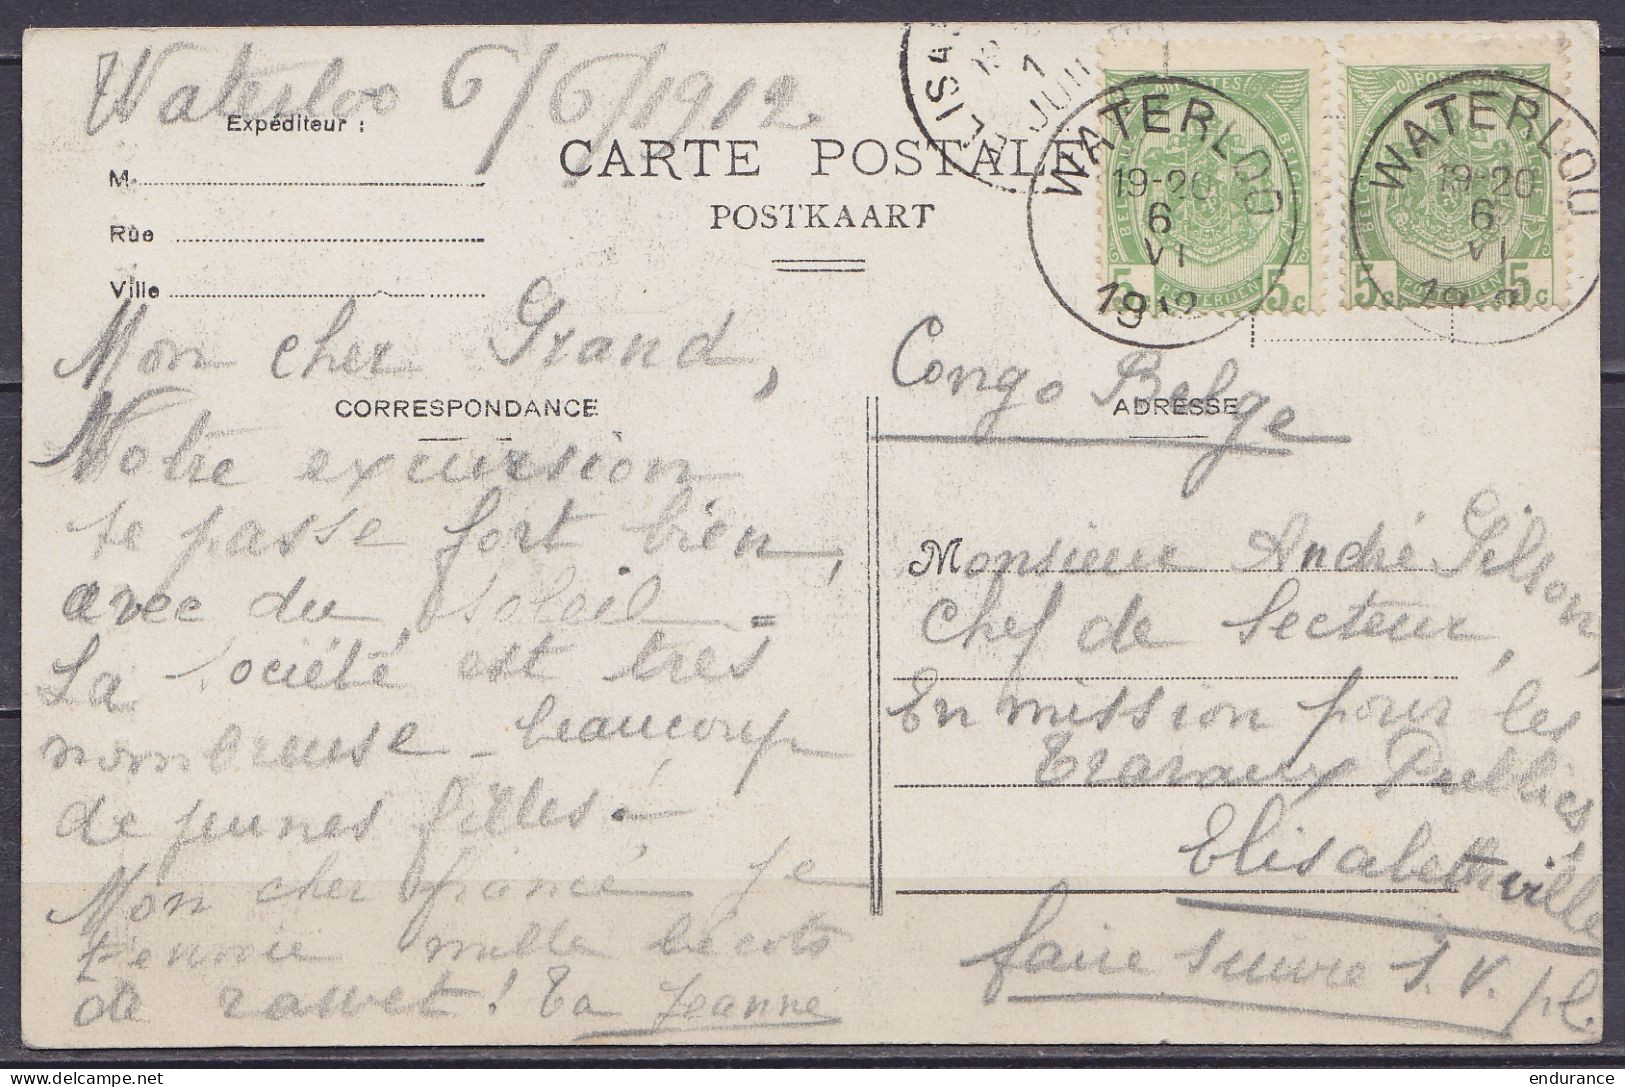 Waterloo 6/6/1912
Expéditeur :
M.
Rûe
Ville
CARTE POSTALE
POSTKAART
WATERLOO
19-20
6
VI
1912
WATERLOO
19-20
6
VI
5c 5c
5c 5c
Mon cher Grand,
CORRESPONDANCE
Notre excursion
se passe fort bien,
avec du soleil
La société est très
nombreuse - beaucoup
de jeunes filles !
Mon cher fiancé je
t'envoie mille bécots
de ! Ta Jeanne
Congo Belge
ADRESSE
Monsieur André Gilson,
Chef de Secteur,
En mission pour les
Travaux Publics
Elisabethville
faire suivre s. v. pl.
endurance
www.delcampe.net